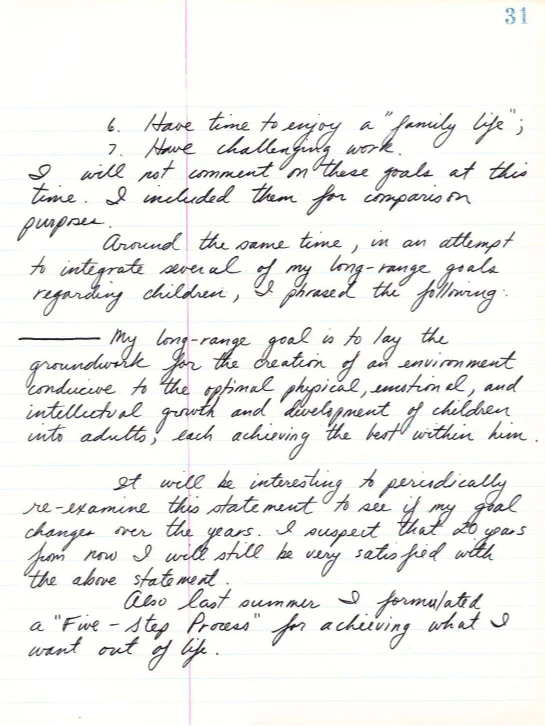 31
6. Have time to enjoy a "family life";
7. Have challenging work.
I will not comment on these goals at this
time. I included them for comparison
purposes.
Around the same time, in an attempt
to integrate several of my long-range goals
regarding children, I phrased the following:
My long-range goal is to lay the
groundwork for the creation of an environment
conducive to the optimal physical, emotional, and
intellectual growth and development of children
into adults, each achieving the best within him.
It will be interesting to periodically
re-examine this statement to see if my goal
changes over the years. I suspect that 20 years
from now I will still be very satisfied with
the above statement.
Also last summer I formulated
a "Five-Step Process" for achieving what I
want out of life.